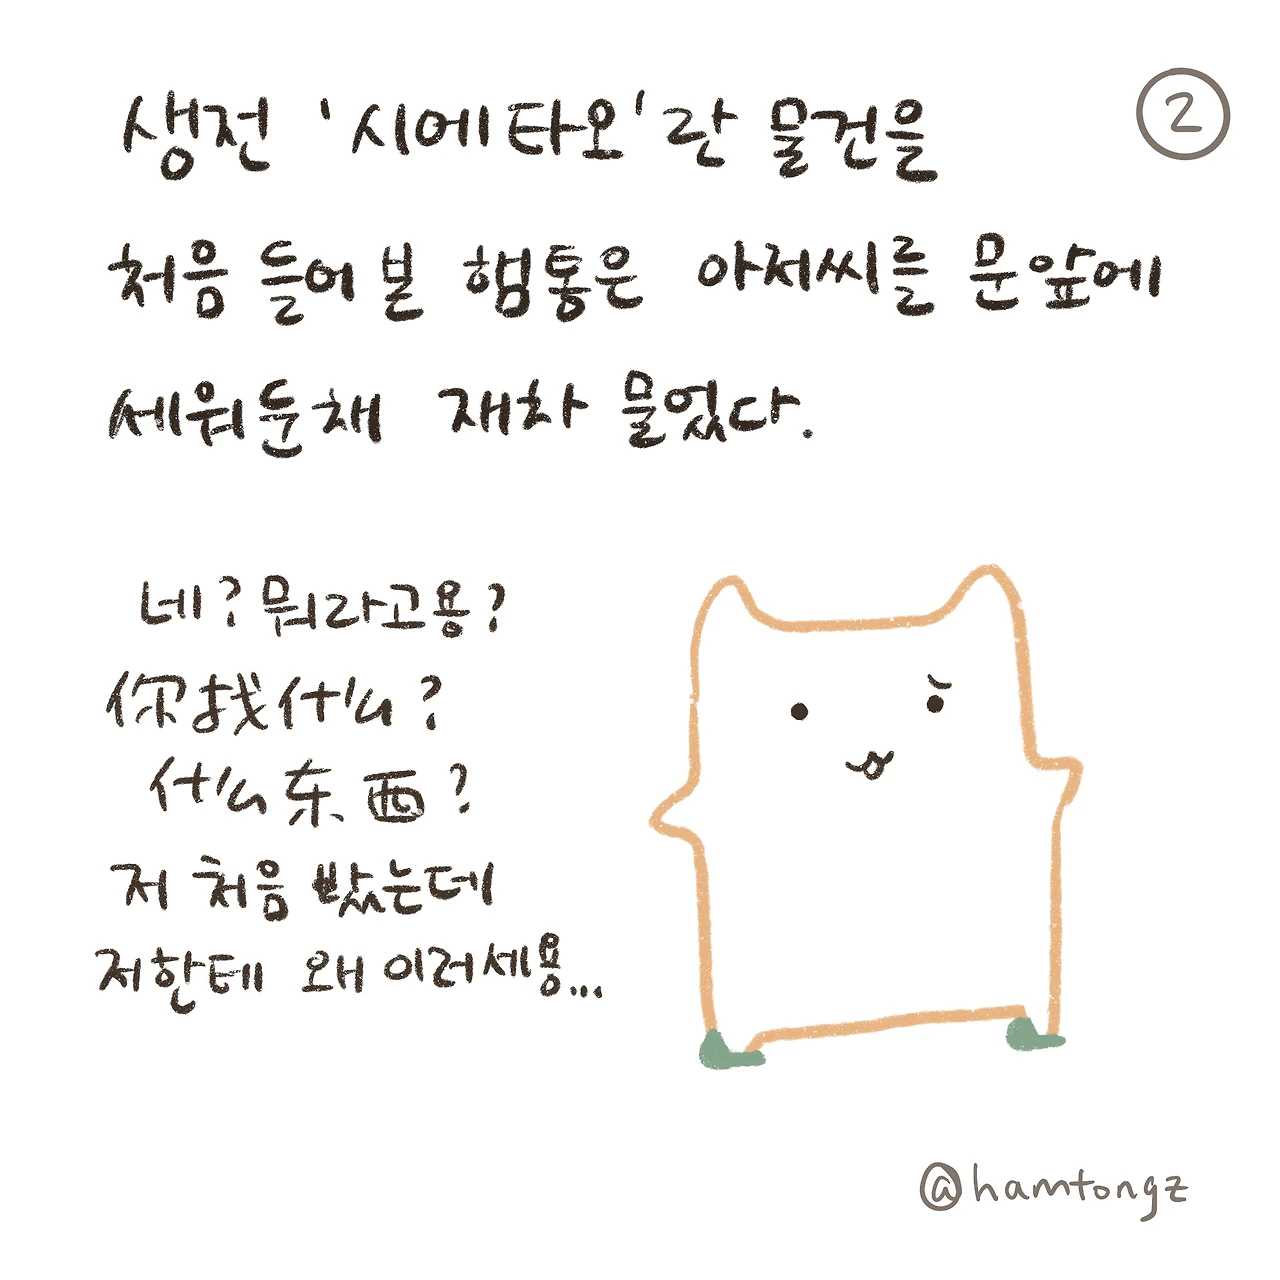 생전 '시에타오'란 물건을
②
처음 들어 본 햄통은 아저씨를 문앞에
세워둔채 재차 물었다.
네? 뭐라고용?
你找什么?
什么东西?
저 처음 봤는데
저한테 왜 이러세용...
@hamtongz